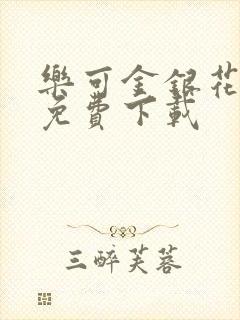 樂可金銀花
免費下載
三醉芙蓉